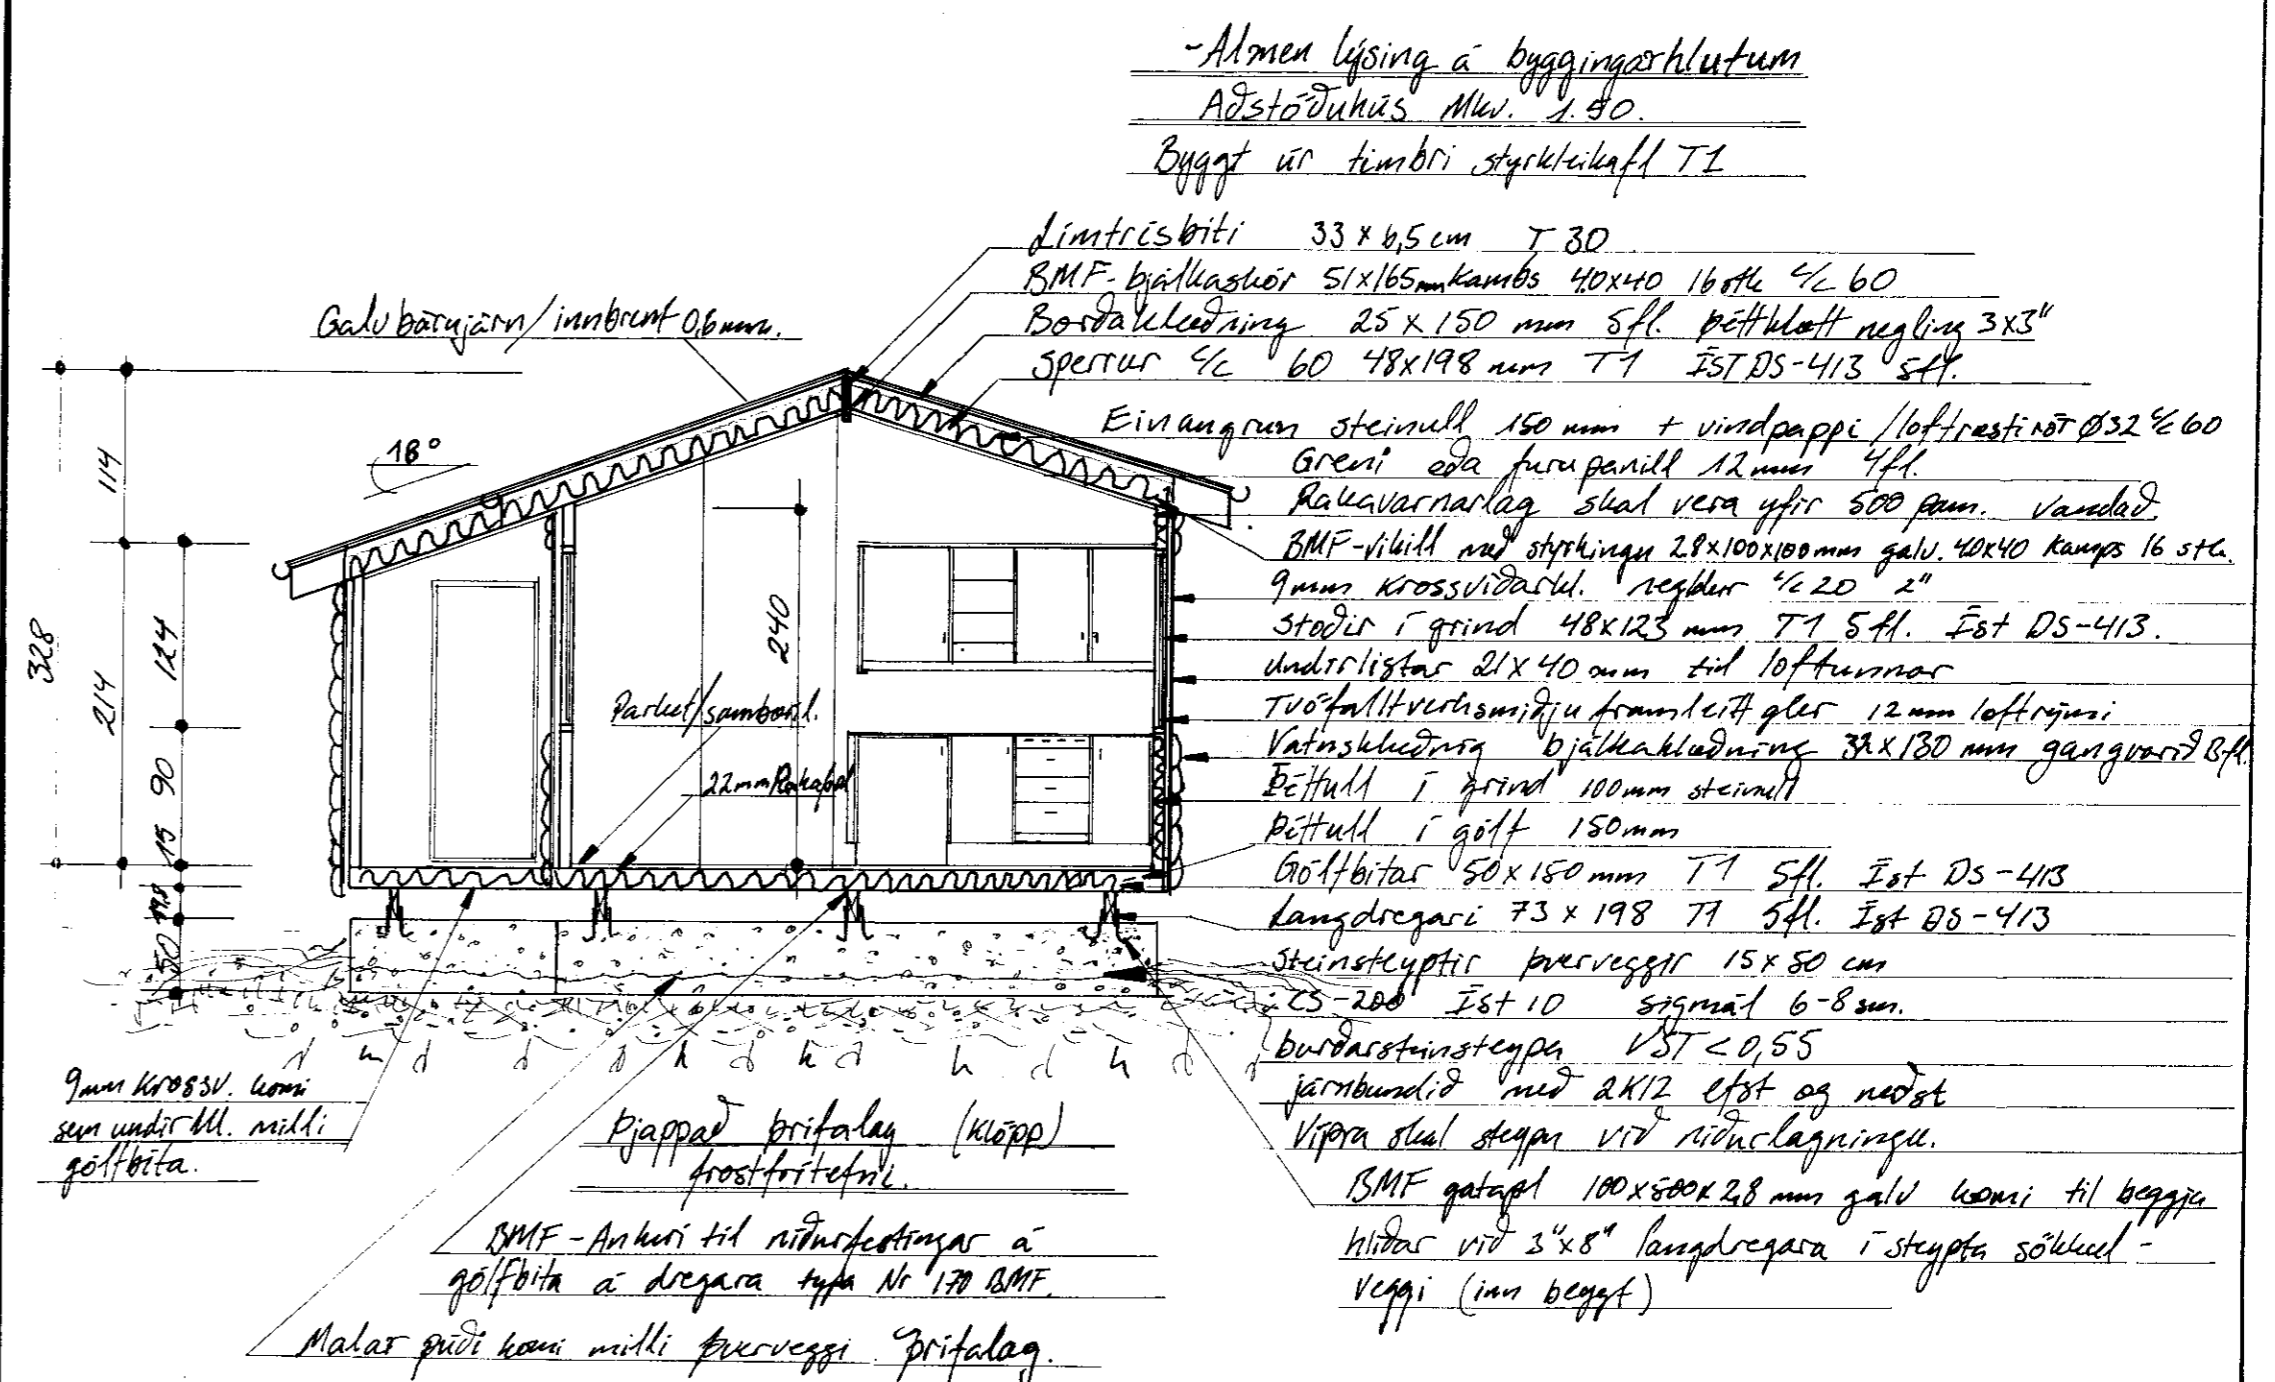 -Almen lýsing á byggingarhlutum
Aðstöðuhús Mkv. 1.50.
Byggt úr timbri styrkleikafl T1
Límtrisbiti 33 x 6,5 cm T 30
BMF-bjálkaskór 51x165 mm kambs 40x40 16 stk c/c 60
Borðaklæðning 25 x 150 mm 5fl. þéttklætt negling 3x3"
Sperrur c/c 60 48x198 mm T1 ÍST DS-413 5fl.
Einangrun steinull 150 mm + vindpappi / loftræstirör Ø32 c/c 60
Greni eða furupanill 12 mm 4fl.
Rakavarnarlag skal vera yfir 500 pam. vandað.
BMF-vikill með styrkingu 2.8x100x100mm galv. 40x40 kamps 16 stk.
9mm krossviðarkl. negldur c/c 20 2"
Stoðir í grind 48x123 mm T1 5fl. Íst DS-413.
Undirlistar 21x40 mm til loftunnar
Tvöfallt verksmiðju framleitt gler 12 mm loftrými
Vatnsklæðnig bjálkaklæðning 32x130 mm gangvarið B fl.
Þéttull í grind 100mm steinull
Þéttull í gólf 150mm
Gólfbitar 50x150 mm T1 5fl. Íst DS-413
Langdregari 73 x 198 T1 5fl. Íst DS-413
Steinsteyptir þverveggir 15x50 cm
CS-200 Íst 10 sigmál 6-8 sm.
burðarsteinsteypa VST < 0,55
járnbundið með 2K12 efst og neðst
Vípra skal steypu við niðurlagningu.
BMF gatapl 100x500x2,8 mm galv komi til beggja
hliðar við 3"x8" langdregara í steypta sökkul-
veggi (inn beggt)
Galv bárujárn/innbrent 0,6mm.
18°
328
114
214
124
90
15
19,8
50
240
Parket/samborl.
22mm Rakapl
9mm krossv. komi
sem undir kl. milli
gólfbita.
Þjappað þrifalag (klöpp)
frostfrítt efni.
BMF-Ankeri til niðurfestingar á
gólfbita á dregara typa Nr 170 BMF.
Malar púði komi milli þverveggi þrifalag.